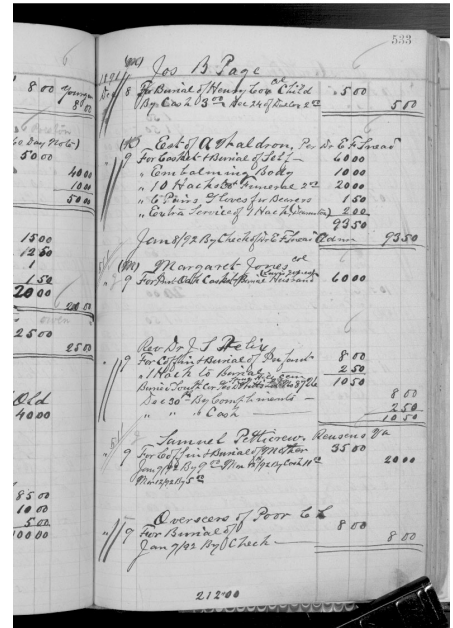 533
8 00 Younger
8 00
Co. Day Note)
50 00
40 00
10 00
50 00
15 00
12 50
1
1 50
20 00
20 00
25 00
25 00
Old
40 00
85 00
10 00
5 00
100 00
Jos B. Page
8 For Burial of Henry Cox Col Child 5 00
By Cash 3 00 Dec 24 2 00 5 00
Est of A Waldron, Per Dr E. F. Snead
9 For Casket & Burial of Self 60 00
" Embalming Body 10 00
" 10 Hacks at Funeral 2 00 20 00
" 6 Pairs Gloves for Bearers 1 50
" Extra Service of 1 Hack 2 00
93 50
Jan 8/92 By Check of Dr E F Snead Admr 93 50
Margaret Jones Col
9 For Casket & Burial Husband 60 00
Rev. Dr. J. S. Felix
9 For Coffin & Burial of 8 00
" 1 Hack to Burial 2 50
10 50
Dec 30th By Compliments 8 00
" " " Cash 2 50
10 50
Samuel Pettigrew. Reusens Va
9 For Coffin & Burial of Mother 35 00
Jan 9/92 By 9 00 Mar /92 By Cash 20 00
Mar 12/92 By 5 00
Overseers of Poor
9 For Burial of 8 00
Jan 9/92 By Check 8 00
212.00